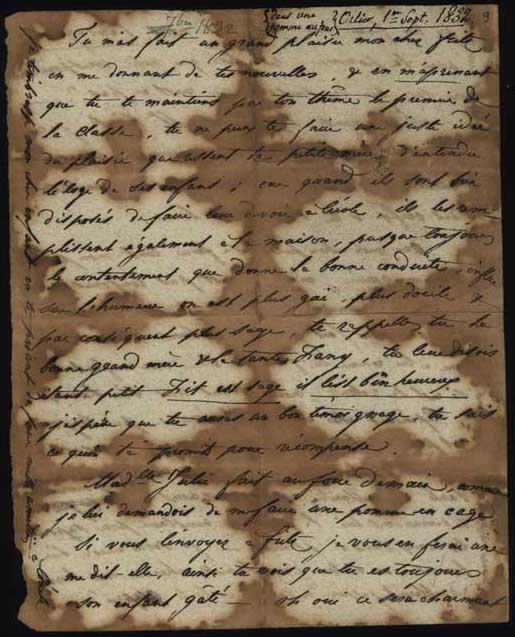 7bre 1832
Orlier, 1er Sept. 1832 9
Tu m'as fait un grand plaisir mon cher fritz
en me donnant de tes nouvelles, & en m'aprenant
que tu te maintiens par ton thême le premier de
la classe, tu ne peux te faire une juste idée
du plaisir que ressent ta petite mère d'entendre
l'éloge de ses enfant ; car quand ils sont bien
disposés de faire leur devoir à l'école, ils les rem
plissent également à la maison, puisque toujours
le contentement que donne la bonne conduite, influe
sur l'humeur on est plus gai, plus docile &
par conséquent plus sage, te rappelles tu la
bonne grand mère & la tante Fany, tu leur disois
étant petit Frit est sage il est bien heureux
j'espère que tu auras un bon témoignage, tu sais
ce qu'on t'a promit pour récompense.
Madlle Julie fait au four demain, comme
je lui demandois de m'faire une pomme en cage
Si vous l'envoyez à fritz je vous en ferai une
me dit-elle, ainsi tu vois que tu es toujours
son enfant gaté — oh oui ce sera charmant